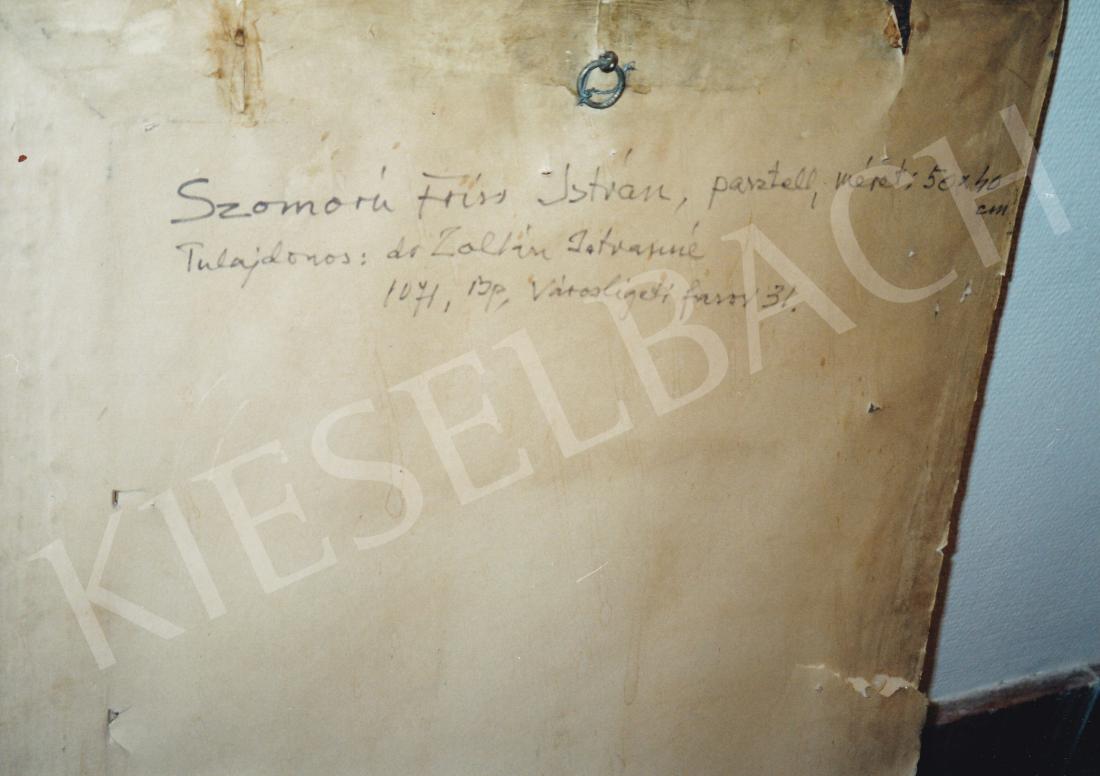 Szomorú Friss István, pasztell, méret: 50x40
cm
Tulajdonos: dr Zoltán Istvanné
1071, Bp, Városligeti fasor 31.
KIESELBACH